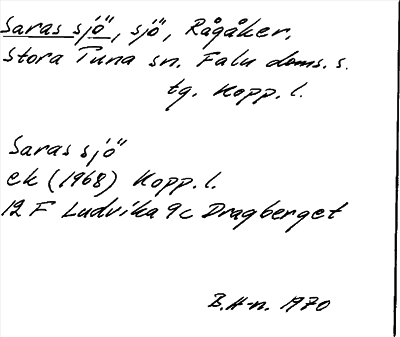 Saras sjö", sjö", Rågåker.
Stora Tuna sn. Falu doms. s.
tg. Kopp. l.
Saras sjö"
ek (1968) Kopp. l.
12 F Ludvika 9c Dragberget
B.H-n. 1970